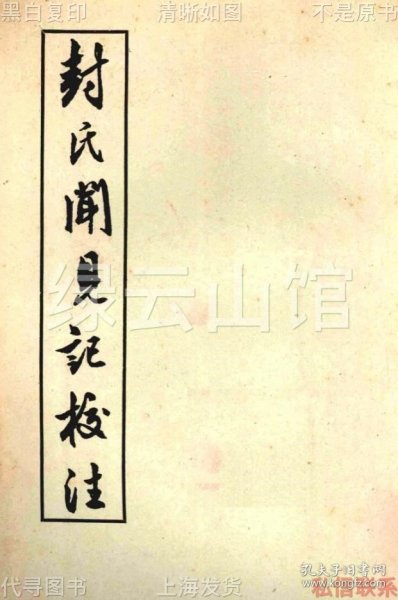 黑白复印 清晰如图 不是原书
封氏聞見記校注
缘云山馆
孔夫子旧书网
www.kongfz.com
代寻图书 上海发货 私信联系